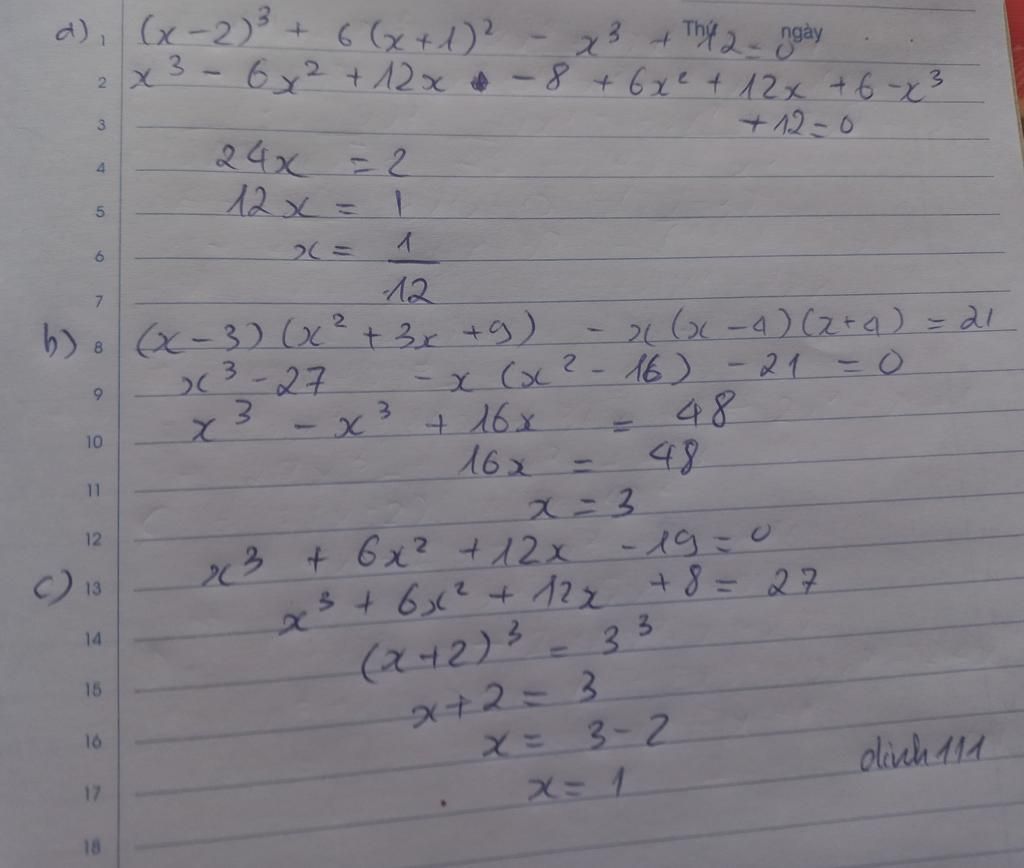 Thứ ngày
a) 1 (x-2)³ + 6(x+1)² - x³ + 12 = 0
2 x³ - 6x² + 12x - 8 + 6x² + 12x + 6 - x³
3 + 12 = 0
4 24x = 2
5 12x = 1
6 x = 1/12
7
b) 8 (x-3)(x² + 3x + 9) - x(x-4)(x+4) = 21
9 x³ - 27 - x(x² - 16) - 21 = 0
10 x³ - x³ + 16x = 48
11 16x = 48
12 x = 3
c) 13 x³ + 6x² + 12x - 19 = 0
14 x³ + 6x² + 12x + 8 = 27
15 (x+2)³ = 3³
16 x+2 = 3
17 x = 3-2
x = 1
dinh111
18